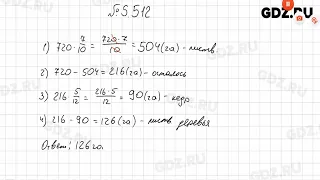 № 5.512
GDZ.RU
1) 720·7/10 = 720·7/10 = 504(га) - листв
2) 720 - 504 = 216(га) - осталось
3) 216·5/12 = 216·5/12 = 90(га) - кедр
4) 216 - 90 = 126(га) - листв деревья
Ответ: 126 га.